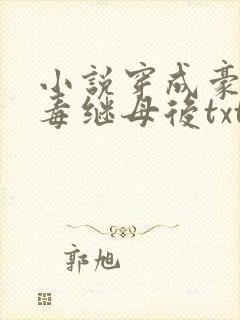 小説穿成豪
毒继母後txt
郭旭